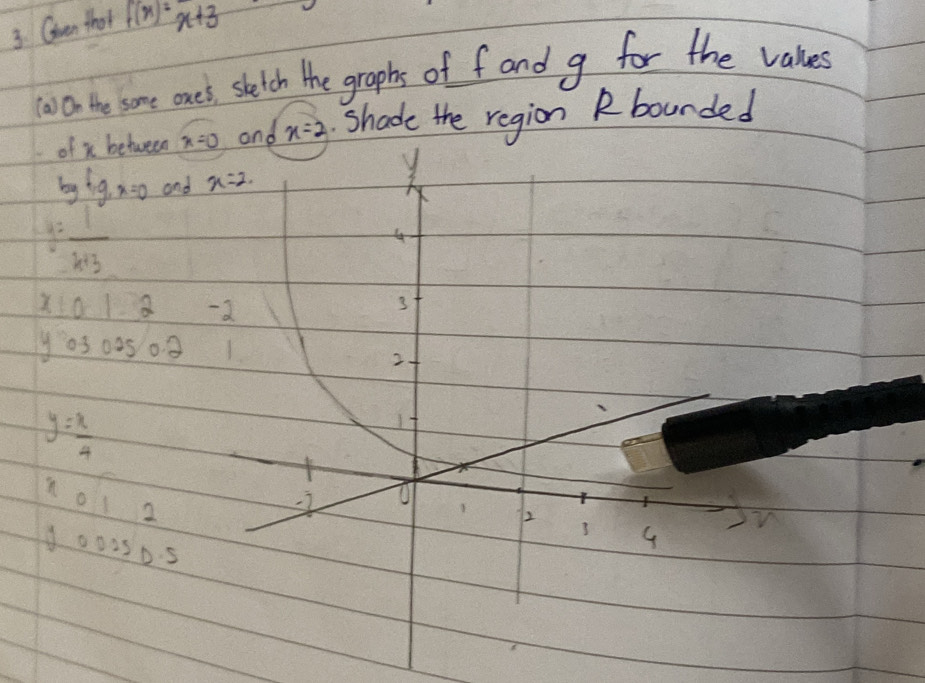 3. Given that f(x)= x+3
(a) On the same axes, sketch the graphs of f and g for the values
of x between x=0 and x=2. Shade the region R bounded
by f, g, x=0 and x=2.
y=1/x+3
x 0 1 2 -2
y 0.3 0.25 0.2 1
y=x/4
x 0 1 2
y 0 0.25 0.5
y
4
3
2
1
-2 0 1 2 3 4 x